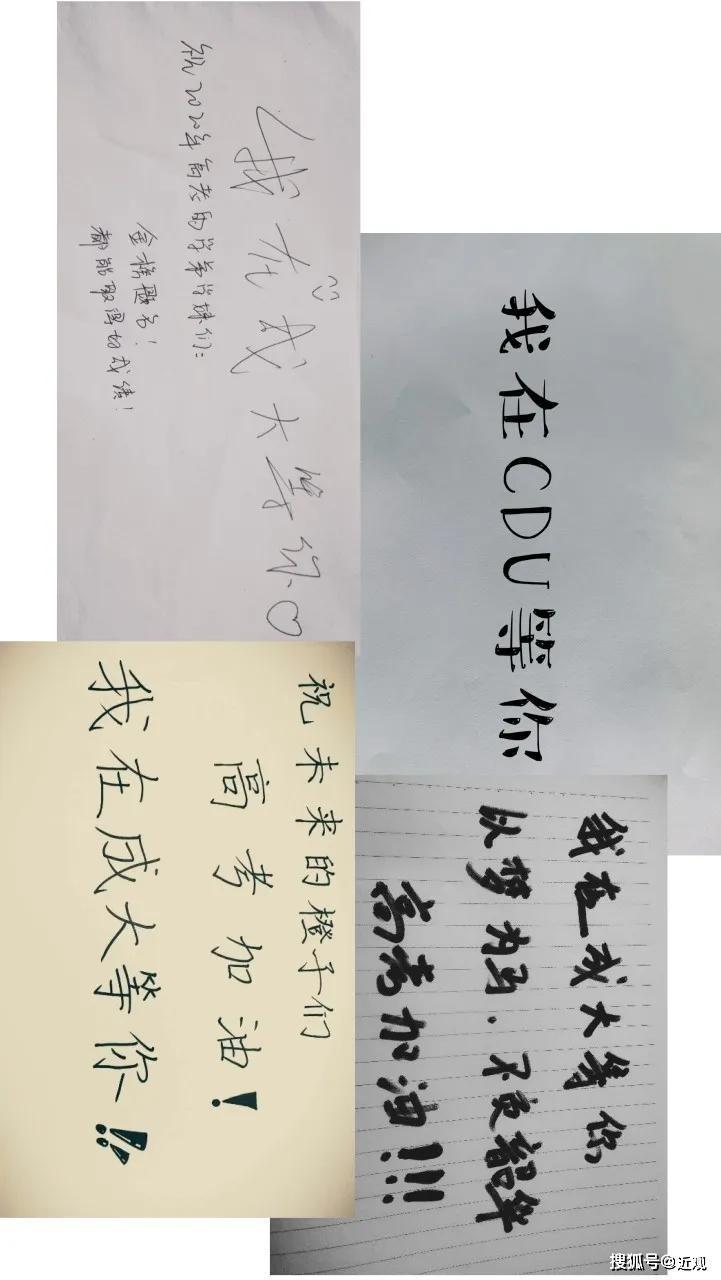 我在成大等你♡
祝2020年高考的学弟学妹们：
金榜题名！
都能取得好成绩！
我在CDU等你
祝未来的橙子们
高考加油！
我在成大等你！！
我在成大等你
以梦为马，不负韶华
高考加油！！！
搜狐号@近观